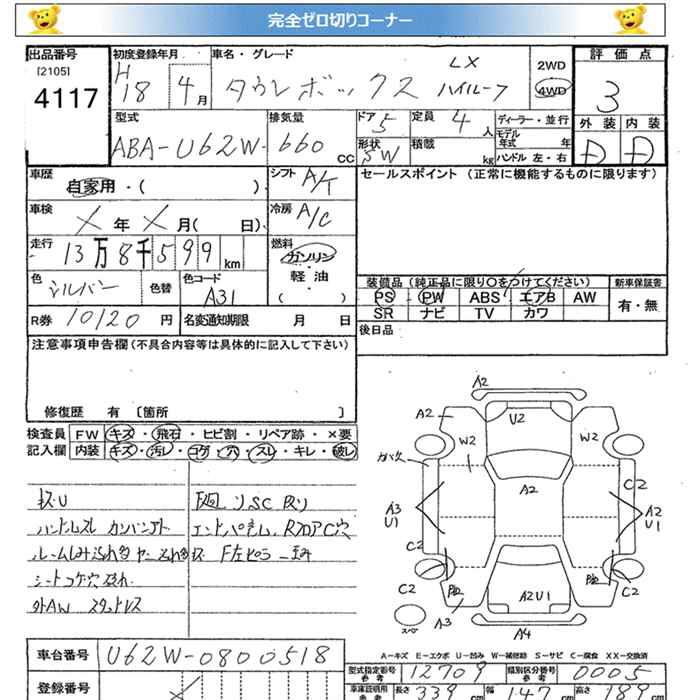 完全ゼロ切りコーナー
出品番号 初度登録年月 車名・グレード LX 2WD 評価点
[2105] H18 4月 タウンボックス ハイルーフ 4WD 3
4117
型式 排気量 ドア 5 定員 4人 ディーラー・並行 外装 内装
ABA-U62W 660 CC 形状 SW 積載 kg モデル年式 年 D D
ハンドル 左・右
車歴 自家用・( ) シフト A/T セールスポイント (正常に機能するものに限ります)
車検 X年 X月( 日) 冷房 A/C
走行 13万8千599km 燃料 ガソリン
軽・油
( )
色 シルバー 色替 色コード A31
装備品 (純正品に限り○をつけてください) 新車保証書
PS PW ABS エアB AW 有・無
SR ナビ TV カワ
R券 10120円 名変通知期限 月 日 後日品
注意事項申告欄(不具合内容等は具体的に記入して下さい)
修復歴 有 [箇所 ]
検査員 FW キズ・飛石・ヒビ割・リペア跡・×要
記入欄 内装 キズ・汚レ・コゲ・穴・スレ・キレ・破レ
A2
A2 U2
W2 W2
ガバ欠
A2
A3 U1
C2
A2 U1
C2 C2
C2
A2U1
スペア A3
A4
キズU
シートコゲ穴破れ
外AW スタッドレス
エンドパネル、RフロアC穴
A-キズ E-エクボ U-凹み W-補修跡 S-サビ C-腐食 XX-交換済
車台番号 U62W-0800518
型式指定番号 参考 12709 類別区分番号 参考 0005
登録番号
車庫証明用 参考 長さ 339 cm 幅 147 cm 高さ 189 cm